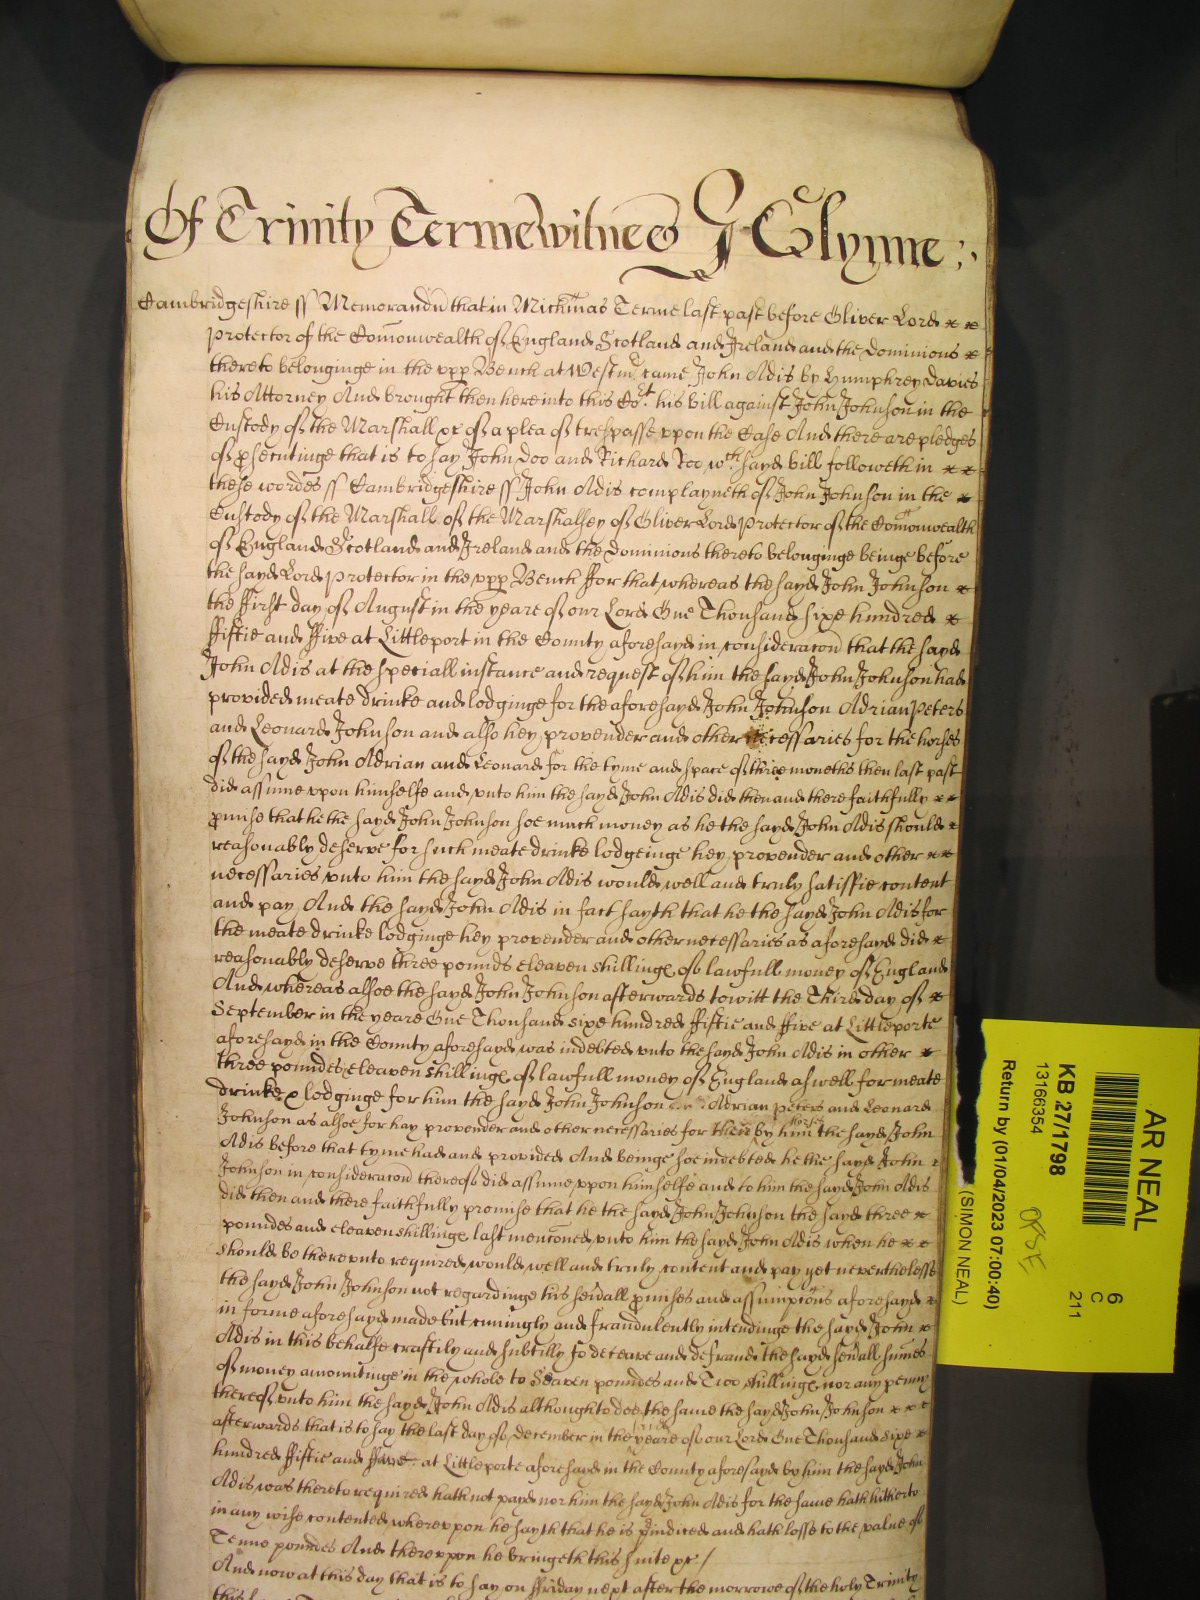 Of Trinity Terme witnes J Glynne
Cambridgeshire ss Memorandu that in Michmas Terme last past before Oliver Lord
Protector of the Comonwealth of England Scotland and Ireland and the Dominions
thereto belonginge in the upp Bench at Westmr came John Adis by Humphrey Davies
his Attorney And brought then here into this Cort his bill against John Johnson in the
Custody of the Marshall &c of a plea of trespasse uppon the Case And there are pledges
of psecutinge that is to say John Doo and Richard Roo wch sayd bill followeth in
these wordes ss Cambridgeshire ss John Adis complayneth of John Johnson in the
Custody of the Marshall of the Marshalsey of Oliver Lord Protector of the Comonwealth
of England Scotland and Ireland and the Dominions thereto belonginge beinge before
the sayd Lord Protector in the upp Bench ffor that whereas the sayd John Johnson
the ffirst day of August in the yeare of our Lord One Thousand sixe hundred
ffiftie and ffive at Littleport in the County aforesayd in consideracon that the sayd
John Adis at the speciall instance and request of him the sayd John Johnson had
provided meate drinke and lodginge for the aforesayd John Johnson Adrian Peters
and Leonard Johnson and also hey provender and other necessaries for the horses
of the sayd John Adrian and Leonard for the tyme and space of three moneths then last past
did assume upon himselfe and unto him the sayd John Adis did then and there faithfully
pmise that he the sayd John Johnson soe much money as he the sayd John Adis should
reasonably deserve for such meate drinke lodgeinge hey provender and other
necessaries unto him the sayd John Adis would well and truly satisfie content
and pay And the sayd John Adis in fact sayth that he the sayd John Adis for
the meate drinke lodginge hey provender and other necessaries as aforesayd did
reasonably deserve three pounds eleaven shillings of lawfull money of England
And whereas alsoe the sayd John Johnson afterwards to witt the Third day of
September in the yeare One Thousand sixe hundred ffiftie and ffive at Littleporte
aforesayd in the County aforesayd was indebted unto the sayd John Adis in other
three poundes eleaven shillings of lawfull money of England as well for meate
drinke & lodginge for him the sayd John Johnson Adrian Peters and Leonard
Johnson as alsoe for hay provender and other necessaries for their horses by him the sayd John
Adis before that tyme had and provided And beinge soe indebted he the sayd John
Johnson in consideracon thereof did assume uppon himselfe and to him the sayd John Adis
did then and there faithfully promise that he the sayd John Johnson the sayd three
poundes and eleaven shillings last menconed unto him the sayd John Adis when he
should be thereunto required would well and truly content and pay yet neverthelesse
the sayd John Johnson not regardinge his sevall pmises and assumpcons aforesayd
in forme aforesayd made but cuningly and fraudulently intendinge the sayd John
Adis in this behalfe craftily and subtilly to deceave and defraud the sayd sevall sumes
of money amountinge in the whole to Seaven poundes and Two shillings nor any penny
thereof unto him the sayd John Adis althought to doe the same the sayd John Johnson
afterwards that is to say the last day of December in the yeare of our Lord One Thousand sixe
hundred ffiftie and ffive at Littleporte aforesayd in the County aforesayd by him the sayd John
Adis was thereto required hath not payd nor him the sayd John Adis for the same hath hitherto
in any wise contented whereuppon he sayth that he is pjudiced and hath losse to the value of
Tenne poundes And thereuppon he bringeth this suite &c /
And now at this day that is to say on ffriday next after the morrowe of the holy Trinity
AR NEAL
KB 27/1798
13166354
Return by (01/04/2023 07:00:40)
(SIMON NEAL)
6
C
211